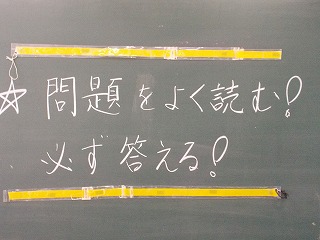 ☆ 問題をよく読む!
必ず答える!